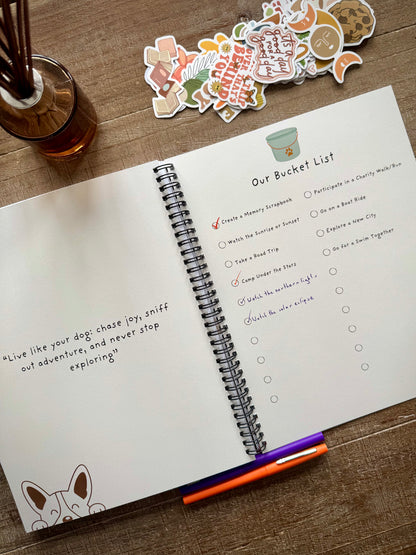 Our Bucket List
Create a Memory Scrapbook
Watch the Sunrise or Sunset
Take a Road Trip
Camp Under the Stars
Watch the northern lights.
Watch the solar eclipse
Participate in a Charity Walk/Run
Go on a Boat Ride
Explore a New City
Go for a Swim Together
“Live like your dog: chase joy, sniff
out adventure, and never stop
exploring”